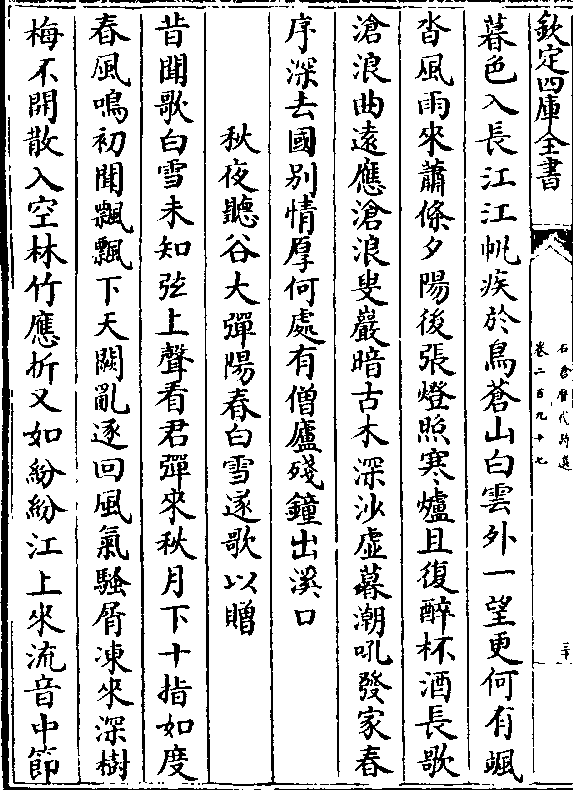 欽定四庫全書
石倉歷代詩選
卷二百九十七
暮色入長江江帆疾於鳥蒼山白雲外一望更何有颯
沓風雨來蕭條夕陽後張燈照寒爐且復醉杯酒長歌
滄浪曲遠應滄浪叟巖暗古木深沙虛暮潮吼發家春
序深去國別情厚何處有僧廬殘鐘出溪口
秋夜聽谷大彈陽春白雪遂歌以贈
昔聞歌白雪未知弦上聲看君彈來秋月下十指如度
春風鳴初聞飄飄下天闕亂逐回風氣騷屑凍來深樹
梅不開散入空林竹應折又如紛紛江上來流音中節